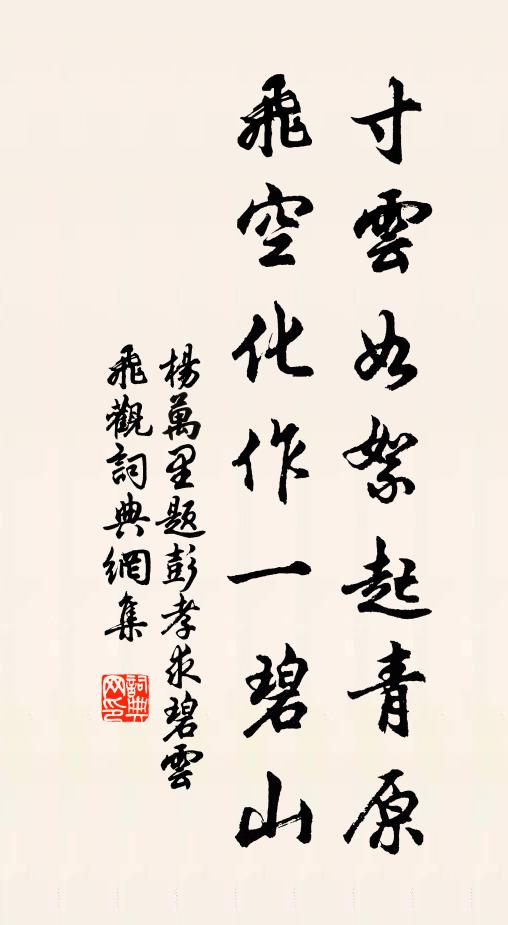 寸雲如絮起青原
飛空化作一碧山
楊萬里題彭孝求碧雲
飛觀詞典網集
詞典
网印